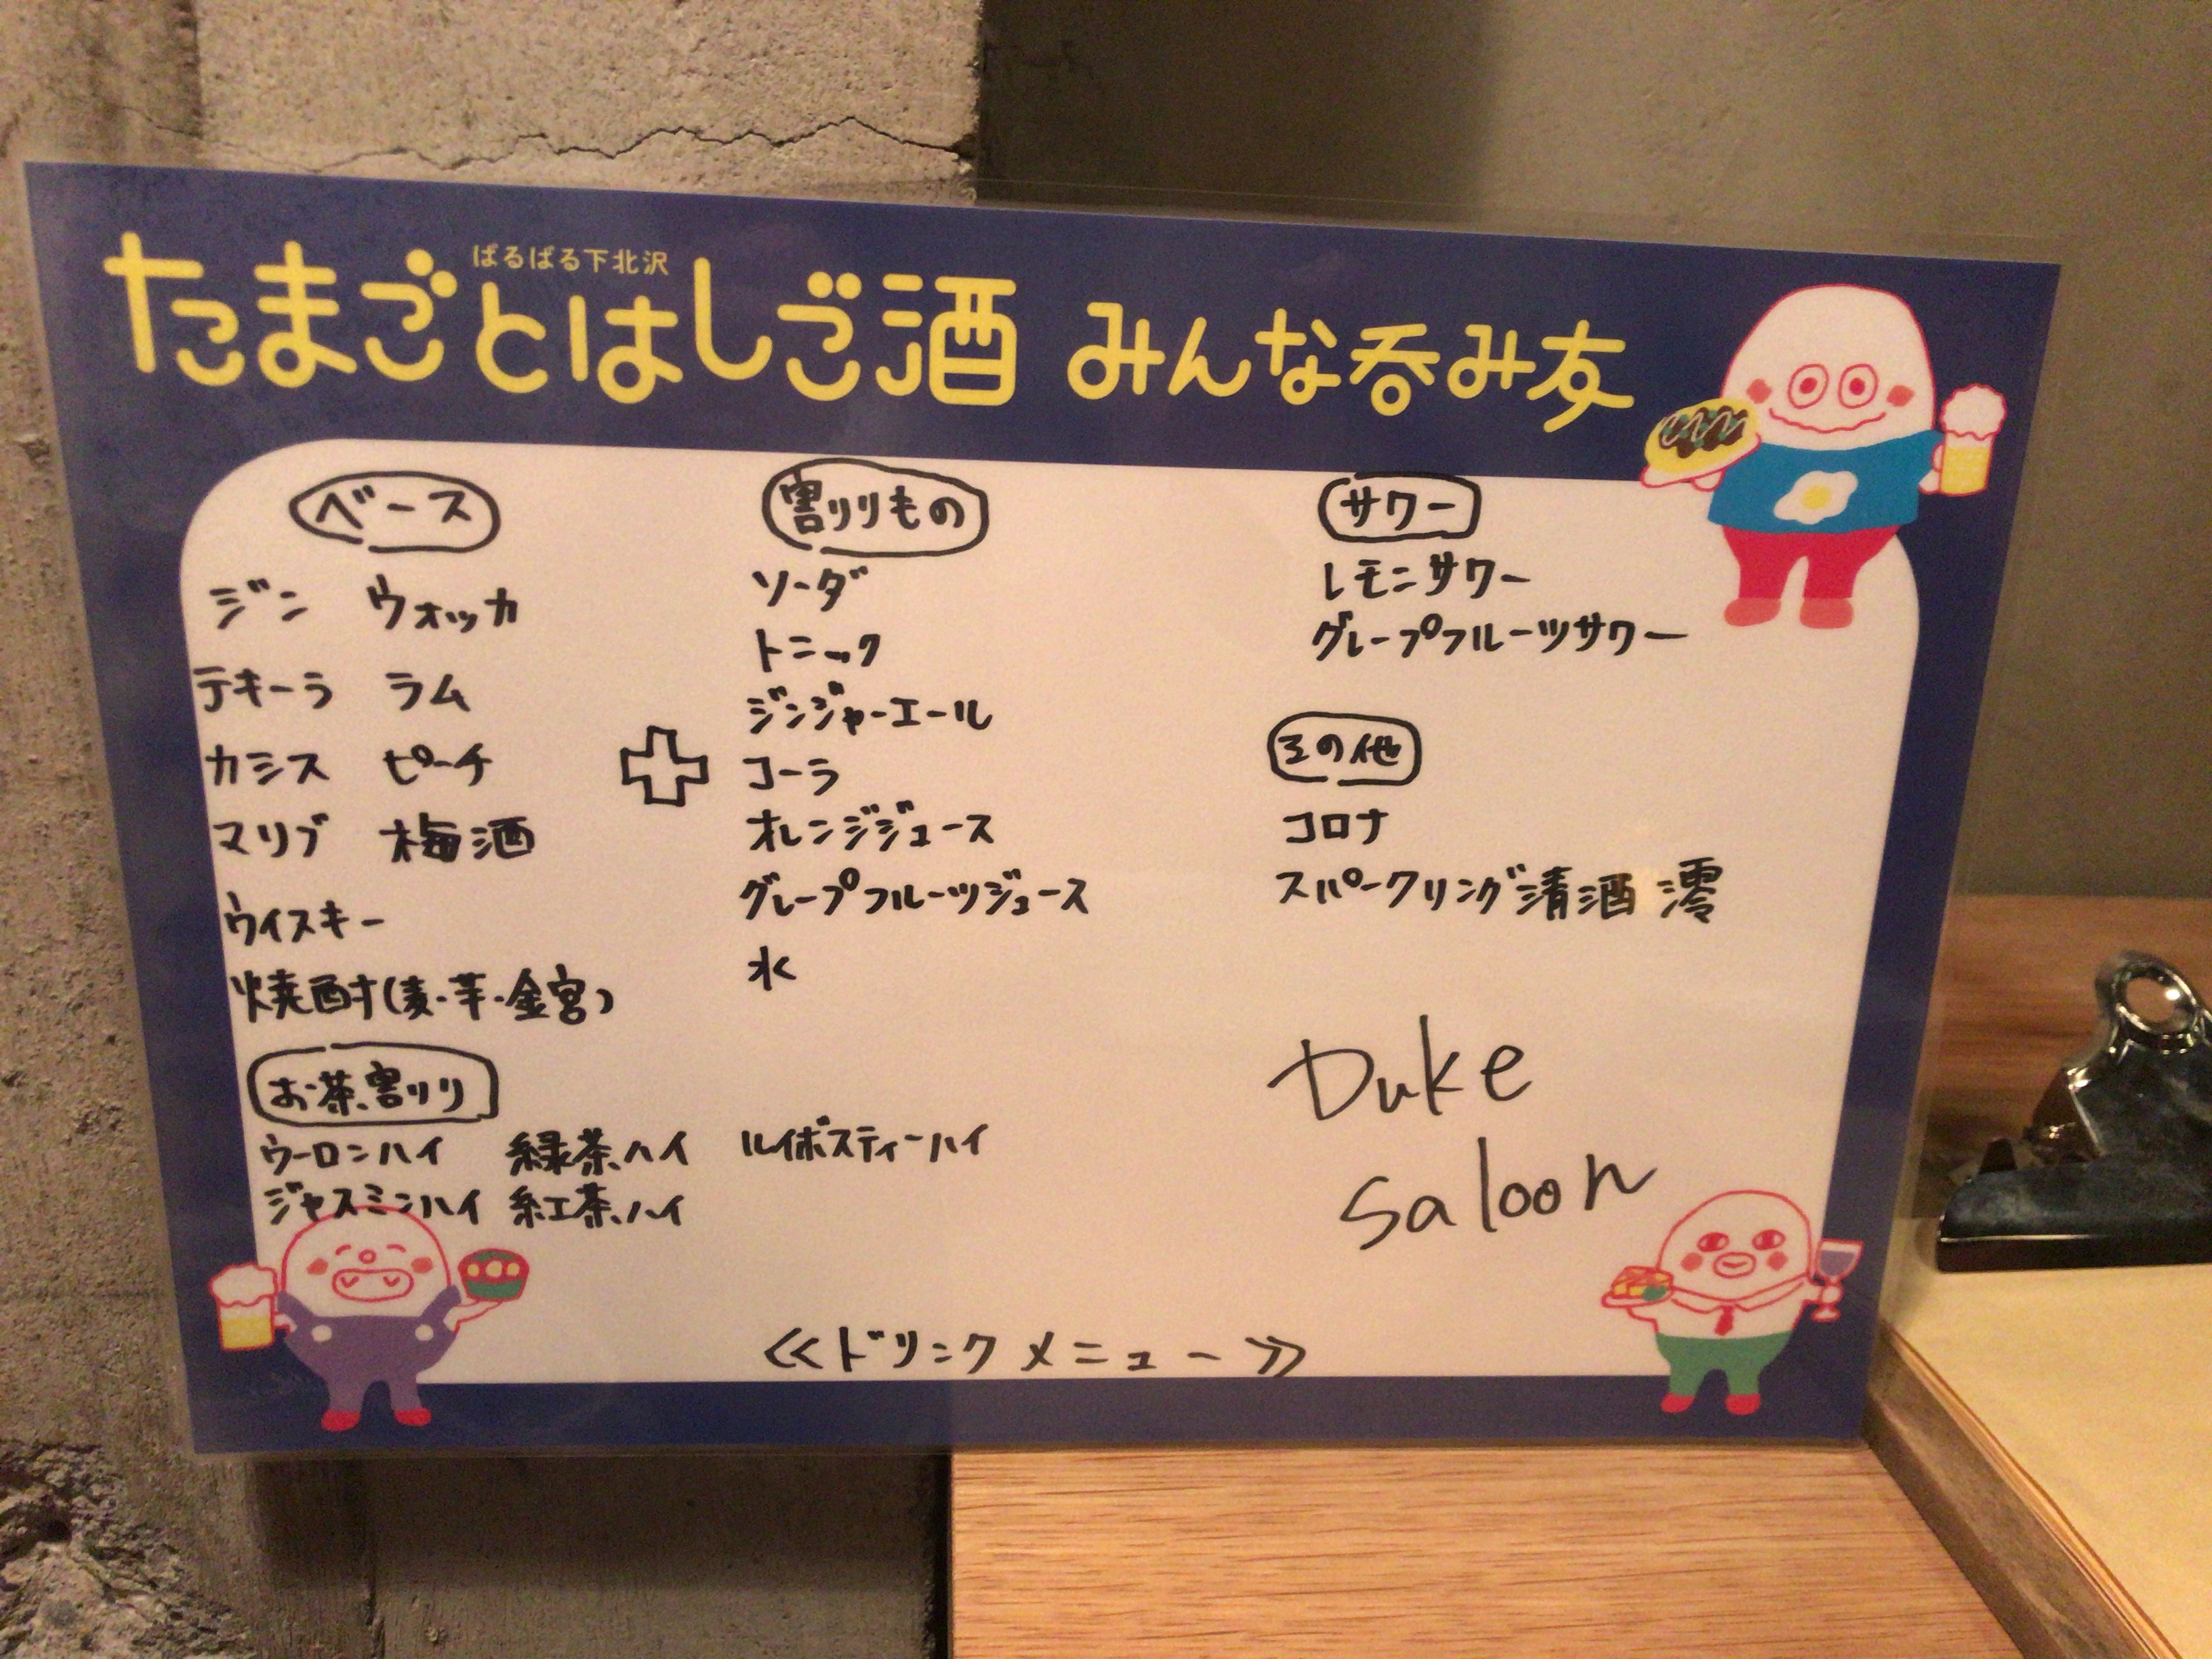 ばるばる下北沢
たまごとはしご酒 みんな呑み友
ベース
ジン ウォッカ
テキーラ ラム
カシス ピーチ
マリブ 梅酒
ウイスキー
焼酎(麦・芋・金宮)
割りもの
ソーダ
トニック
ジンジャーエール
コーラ
オレンジジュース
グレープフルーツジュース
水
サワー
レモンサワー
グレープフルーツサワー
その他
コロナ
スパークリング清酒 澪
お茶割り
ウーロンハイ 緑茶ハイ ルイボスティーハイ
ジャスミンハイ 紅茶ハイ
Duke
Saloon
≪ドリンクメニュー≫